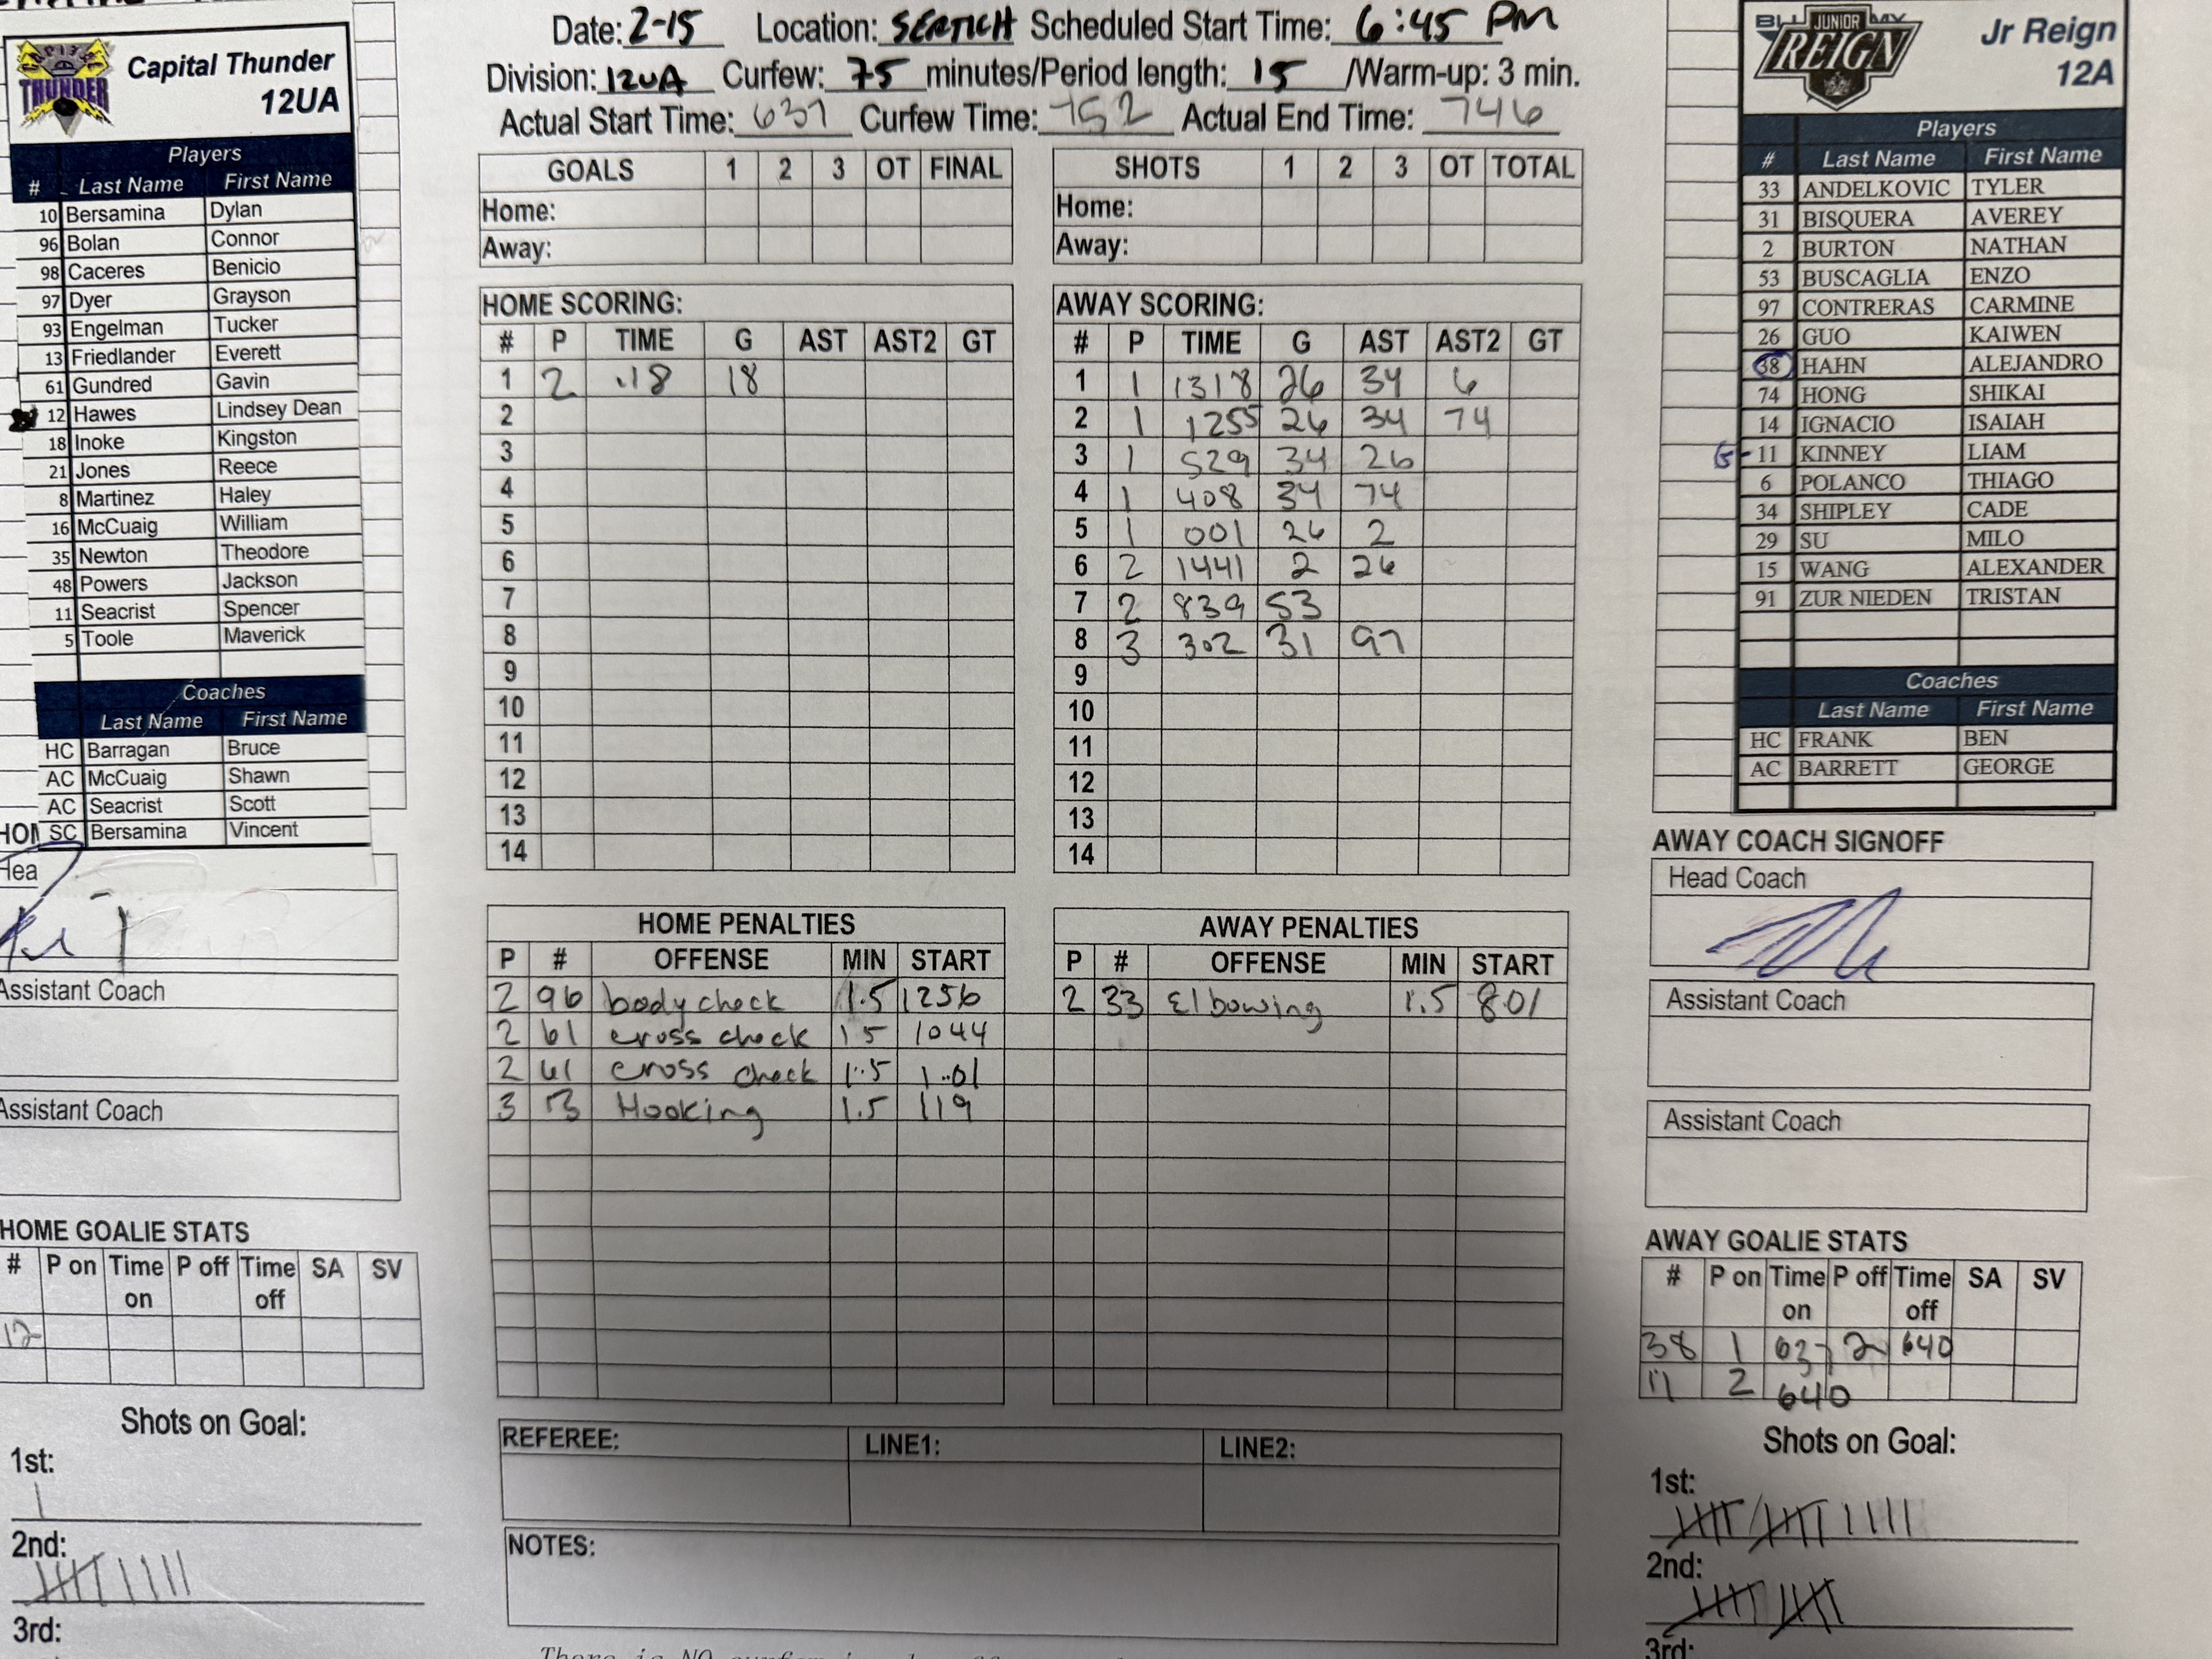 Date: 2-15 Location: SERTICH Scheduled Start Time: 6:45 PM
Division: 12UA Curfew: 75 minutes/Period length: 15 /Warm-up: 3 min.
Actual Start Time: 637 Curfew Time: 752 Actual End Time: 746
THUNDER
Capital Thunder
12UA
Players
# Last Name First Name
10 Bersamina Dylan
96 Bolan Connor
98 Caceres Benicio
97 Dyer Grayson
93 Engelman Tucker
13 Friedlander Everett
61 Gundred Gavin
12 Hawes Lindsey Dean
18 Inoke Kingston
21 Jones Reece
8 Martinez Haley
16 McCuaig William
35 Newton Theodore
48 Powers Jackson
11 Seacrist Spencer
5 Toole Maverick
Coaches
Last Name First Name
HC Barragan Bruce
AC McCuaig Shawn
AC Seacrist Scott
SC Bersamina Vincent
Assistant Coach
Assistant Coach
HOME GOALIE STATS
# P on Time on P off Time off SA SV
12
Shots on Goal:
1st:
2nd:
3rd:
GOALS 1 2 3 OT FINAL
Home:
Away:
SHOTS 1 2 3 OT TOTAL
Home:
Away:
HOME SCORING:
# P TIME G AST AST2 GT
1 2 .18 18
2
3
4
5
6
7
8
9
10
11
12
13
14
AWAY SCORING:
# P TIME G AST AST2 GT
1 1 1318 26 34 6
2 1 1255 26 34 74
3 1 529 34 26
4 1 408 34 74
5 1 001 26 2
6 2 1441 2 26
7 2 839 53
8 3 302 31 97
9
10
11
12
13
14
HOME PENALTIES
P # OFFENSE MIN START
2 96 body check 1.5 1256
2 61 cross check 1.5 1044
2 61 cross check 1.5 1.01
3 Hooking 1.5 119
AWAY PENALTIES
P # OFFENSE MIN START
2 33 Elbowing 1.5 801
REFEREE: LINE1: LINE2:
NOTES:
JUNIOR
REIGN
Jr Reign
12A
Players
# Last Name First Name
33 ANDELKOVIC TYLER
31 BISQUERA AVEREY
2 BURTON NATHAN
53 BUSCAGLIA ENZO
97 CONTRERAS CARMINE
26 GUO KAIWEN
38 HAHN ALEJANDRO
74 HONG SHIKAI
14 IGNACIO ISAIAH
G- 11 KINNEY LIAM
6 POLANCO THIAGO
34 SHIPLEY CADE
29 SU MILO
15 WANG ALEXANDER
91 ZUR NIEDEN TRISTAN
Coaches
Last Name First Name
HC FRANK BEN
AC BARRETT GEORGE
AWAY COACH SIGNOFF
Head Coach
Assistant Coach
Assistant Coach
AWAY GOALIE STATS
# P on Time on P off Time off SA SV
38 1 637 2 640
11 2 640
Shots on Goal:
1st:
2nd:
3rd: